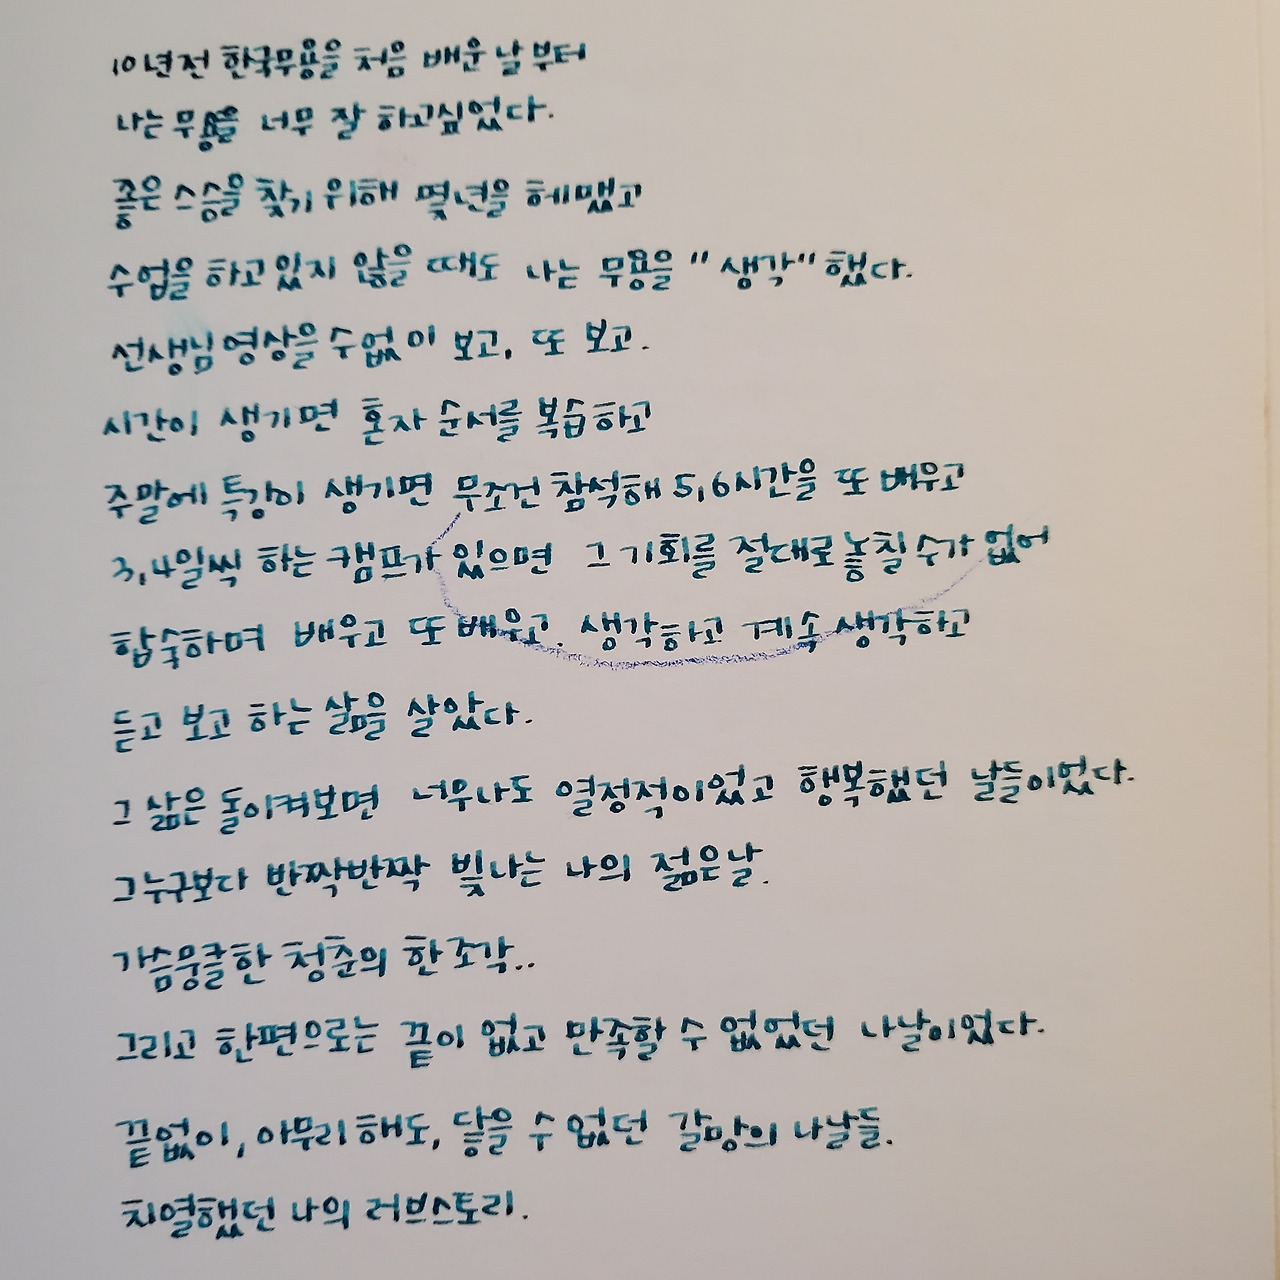 10년전 한국무용을 처음 배운 날 부터
나는 무용을 너무 잘 하고싶었다.
좋은 스승을 찾기 위해 몇년을 헤맸고
수업을 하고 있지 않을 때도 나는 무용을 "생각"했다.
선생님 영상을 수없이 보고, 또 보고.
시간이 생기면 혼자 순서를 복습하고
주말에 특강이 생기면 무조건 참석해 5,6시간을 또 배우고
3,4일씩 하는 캠프가 있으면 그 기회를 절대로 놓칠 수가 없어
합숙하며 배우고 또 배우고. 생각하고 계속 생각하고
듣고 보고 하는 삶을 살았다.
그 삶은 돌이켜보면 너무나도 열정적이었고 행복했던 날들이었다.
그누구보다 반짝반짝 빛나는 나의 젊은날.
가슴뭉클한 청춘의 한 조각..
그리고 한편으로는 끝이 없고 만족할 수 없었던 나날이었다.
끝없이, 아무리 해도, 닿을 수 없던 갈망의 나날들.
치열했던 나의 러브스토리.